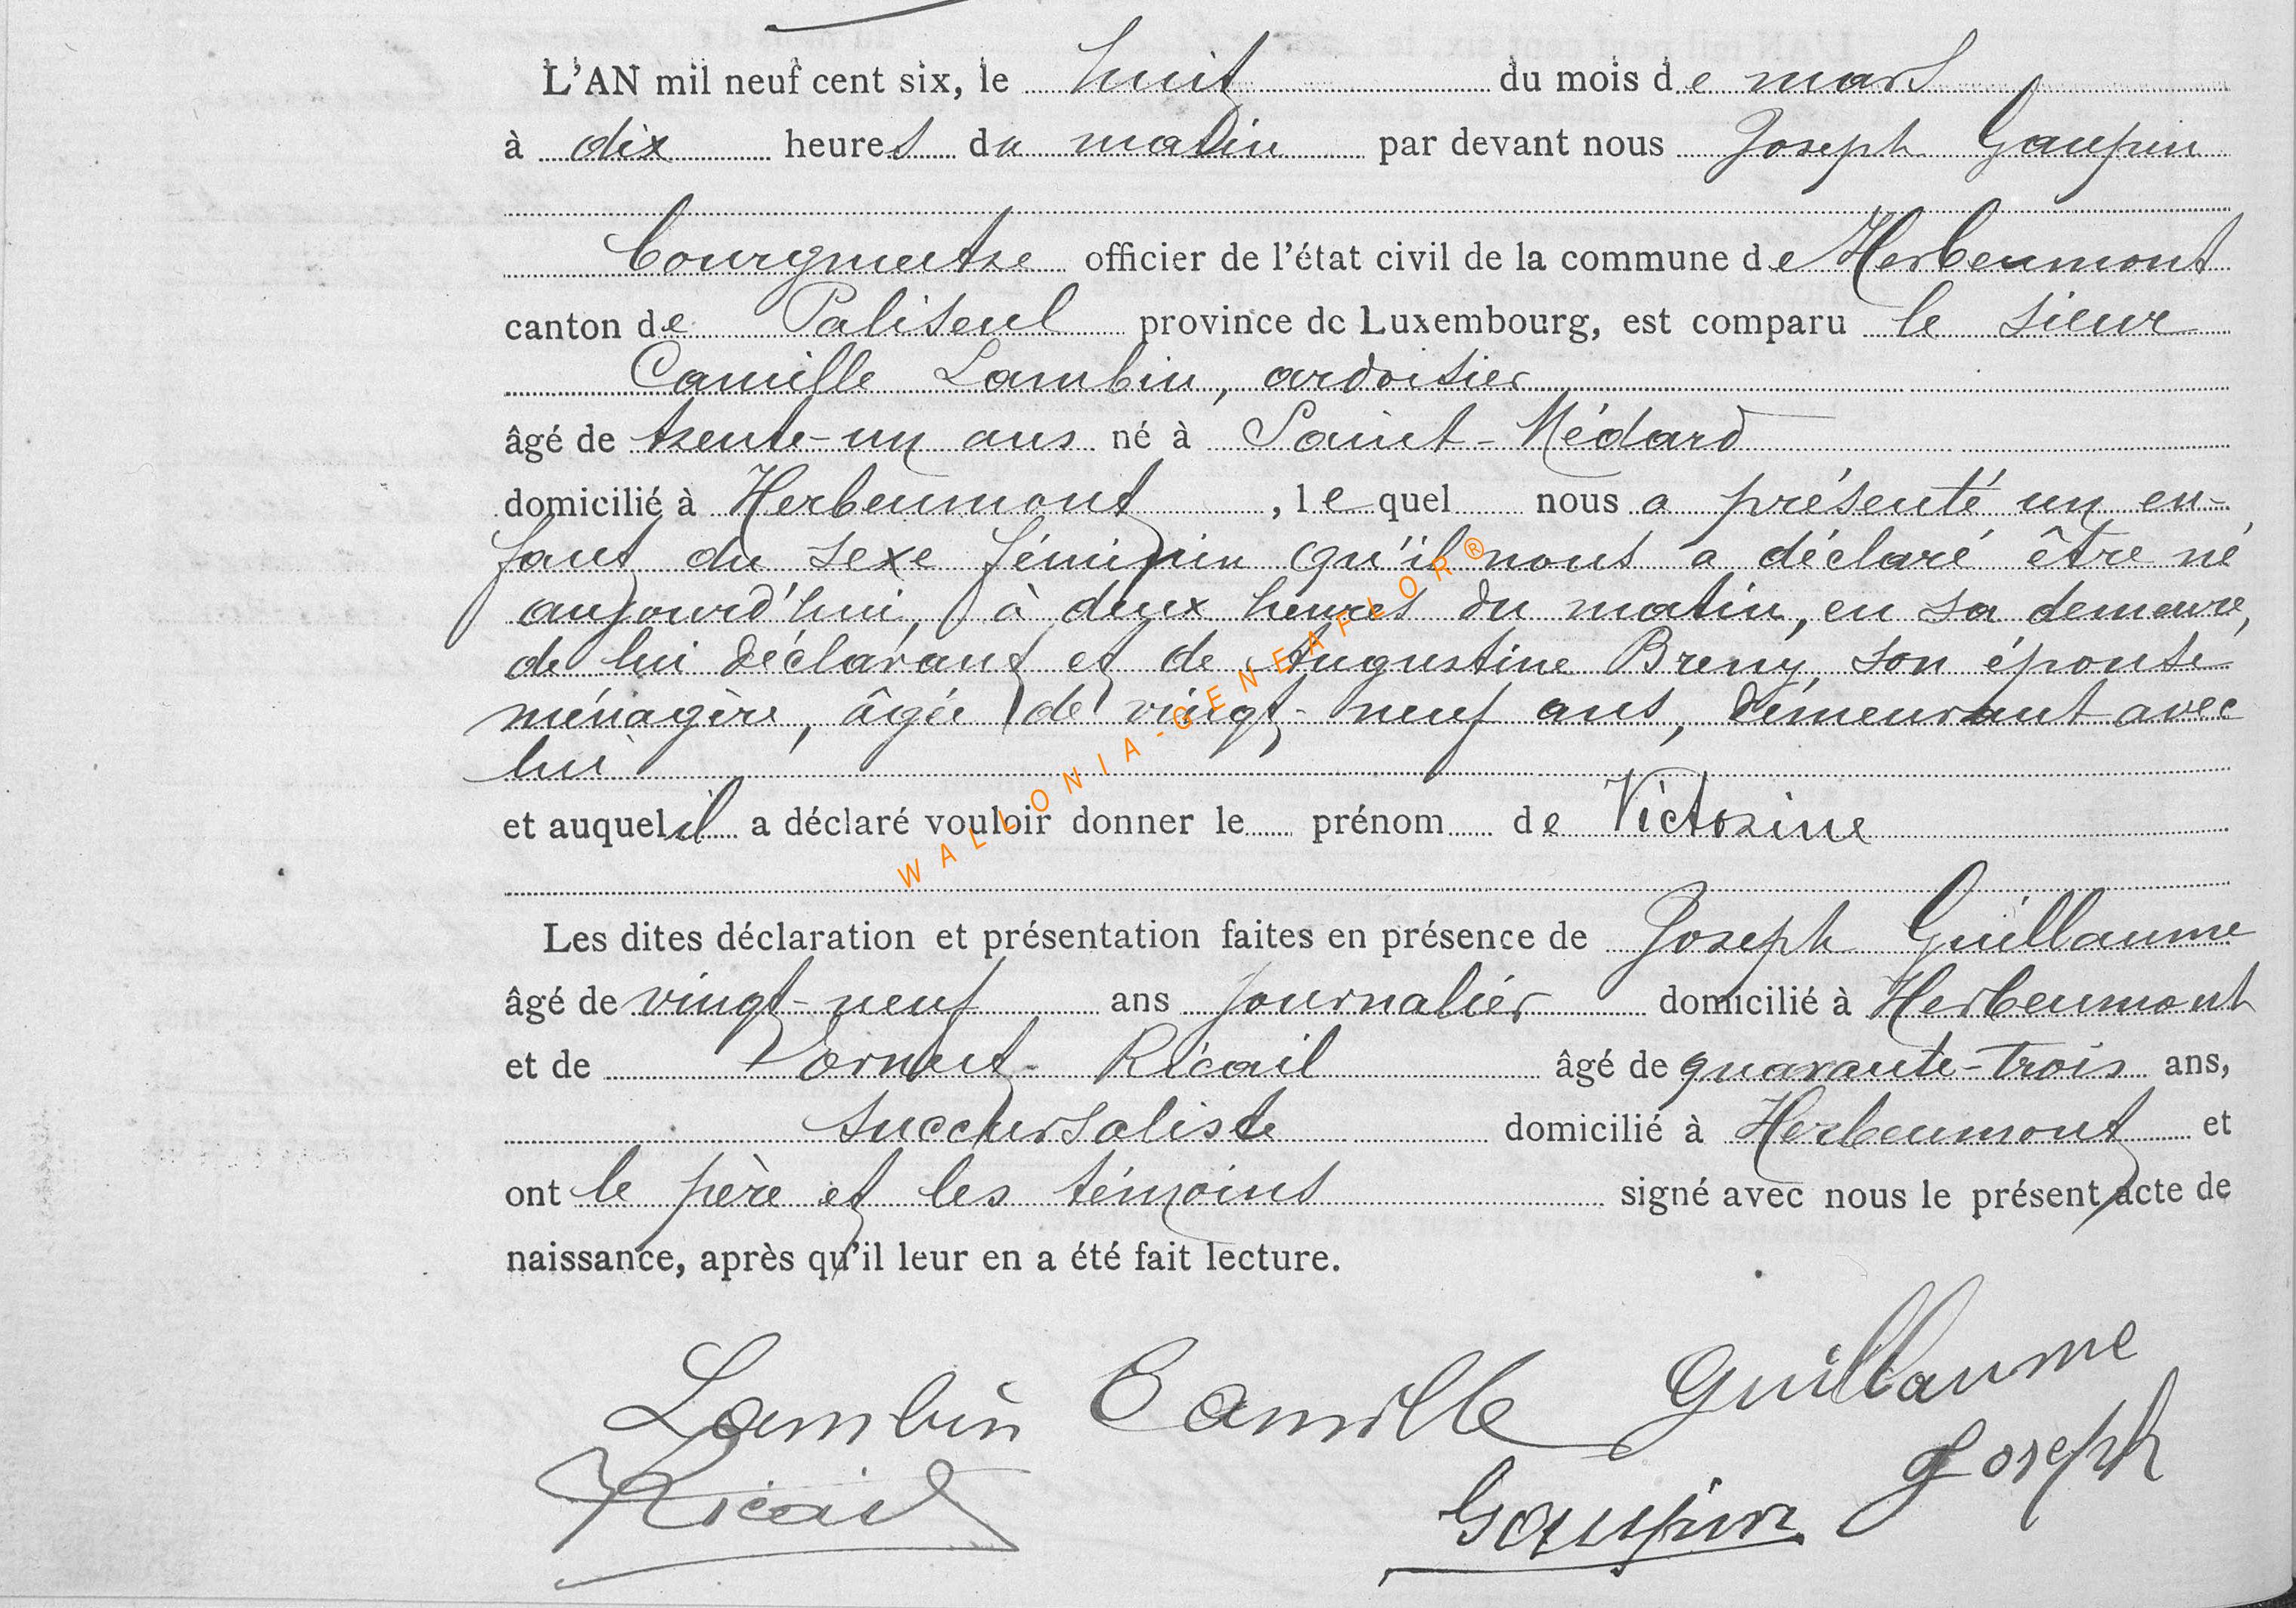 L'AN mil neuf cent six, le huit du mois de mars
à dix heures du matin par devant nous Joseph Gaupin
bourgmestre officier de l'état civil de la commune de Herbeumont
canton de Paliseul province de Luxembourg, est comparu le sieur
Camille Lambin, ardoisier
âgé de trente-un ans né à Saint-Médard
domicilié à Herbeumont, lequel nous a présenté un en-
fant du sexe féminin qu'il nous a déclaré être né
aujourd'hui, à deux heures du matin, en sa demeure,
de lui déclarant et de Augustine Breny, son épouse
ménagère, âgée de vingt-neuf ans, demeurant avec
lui
et auquel il a déclaré vouloir donner le prénom de Victorine
Les dites déclaration et présentation faites en présence de Joseph Guillaume
âgé de vingt-neuf ans journalier domicilié à Herbeumont
et de Ricail âgé de quarante-trois ans,
succursaliste domicilié à Herbeumont et
ont le père et les témoins signé avec nous le présent acte de
naissance, après qu'il leur en a été fait lecture.
Lambin Camille Guillaume
Joseph
Ricail Gaupin
WALLONIA-GENEAFLOR®